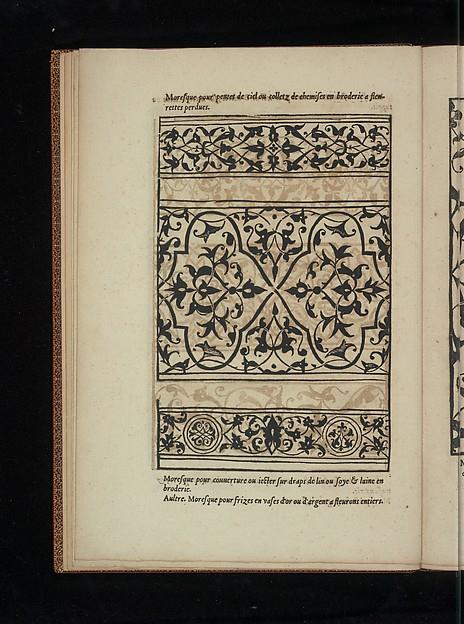 Moresque pour pentes de ciel ou colletz de chemises en broderie a fleu-
rettes perdues.
Moresque pour couuerture ou iecter sur draps de lin ou soye & laine en
broderie.
Aultre. Moresque pour frizes en vases d'or ou d'argent a fleurons entiers.